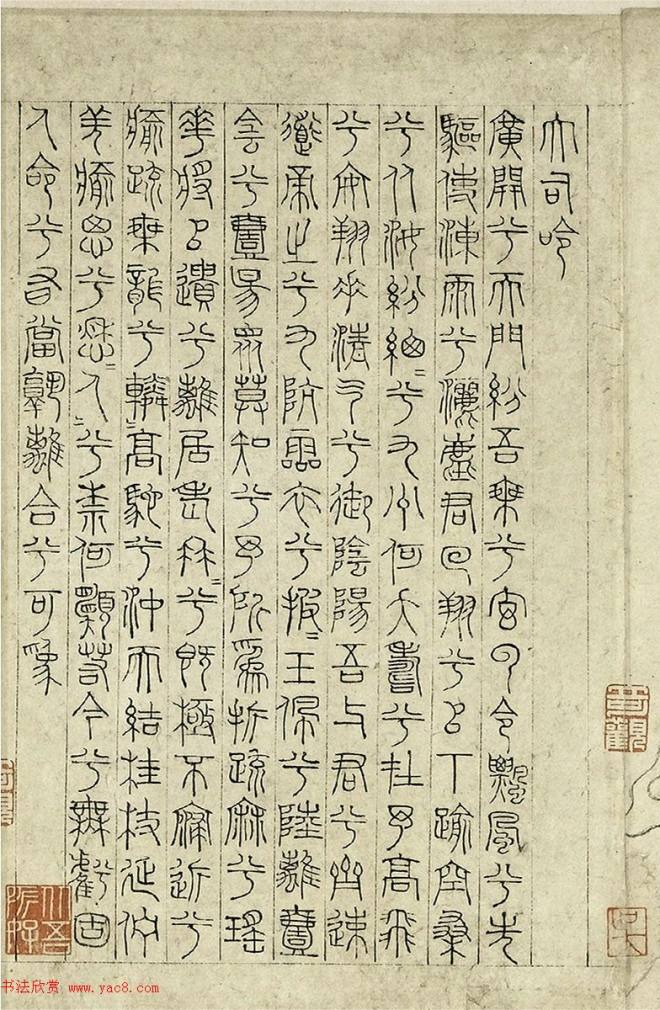 大司命
廣開兮天門紛吾乘兮玄雲令飄風兮先
驅使涷雨兮灑塵君迴翔兮以下踰空桑
兮从汝紛緫=兮九州何夭壽兮在予高飛
兮安翔乘清气兮御陰陽吾与君兮齊速
導帝之兮九阬靈衣兮披=玉佩兮陸離壹
陰兮壹陽眾莫知兮予所為折疏麻兮瑤
華將以遺兮離居老冉=兮既極不寖近兮
愈疏乘龍兮轔=高馳兮沖天結桂枝延佇
羌愈思兮愁=人=兮柰何願若今兮無虧固
人命兮有當孰離合兮可為
书法欣赏 www.yac8.com